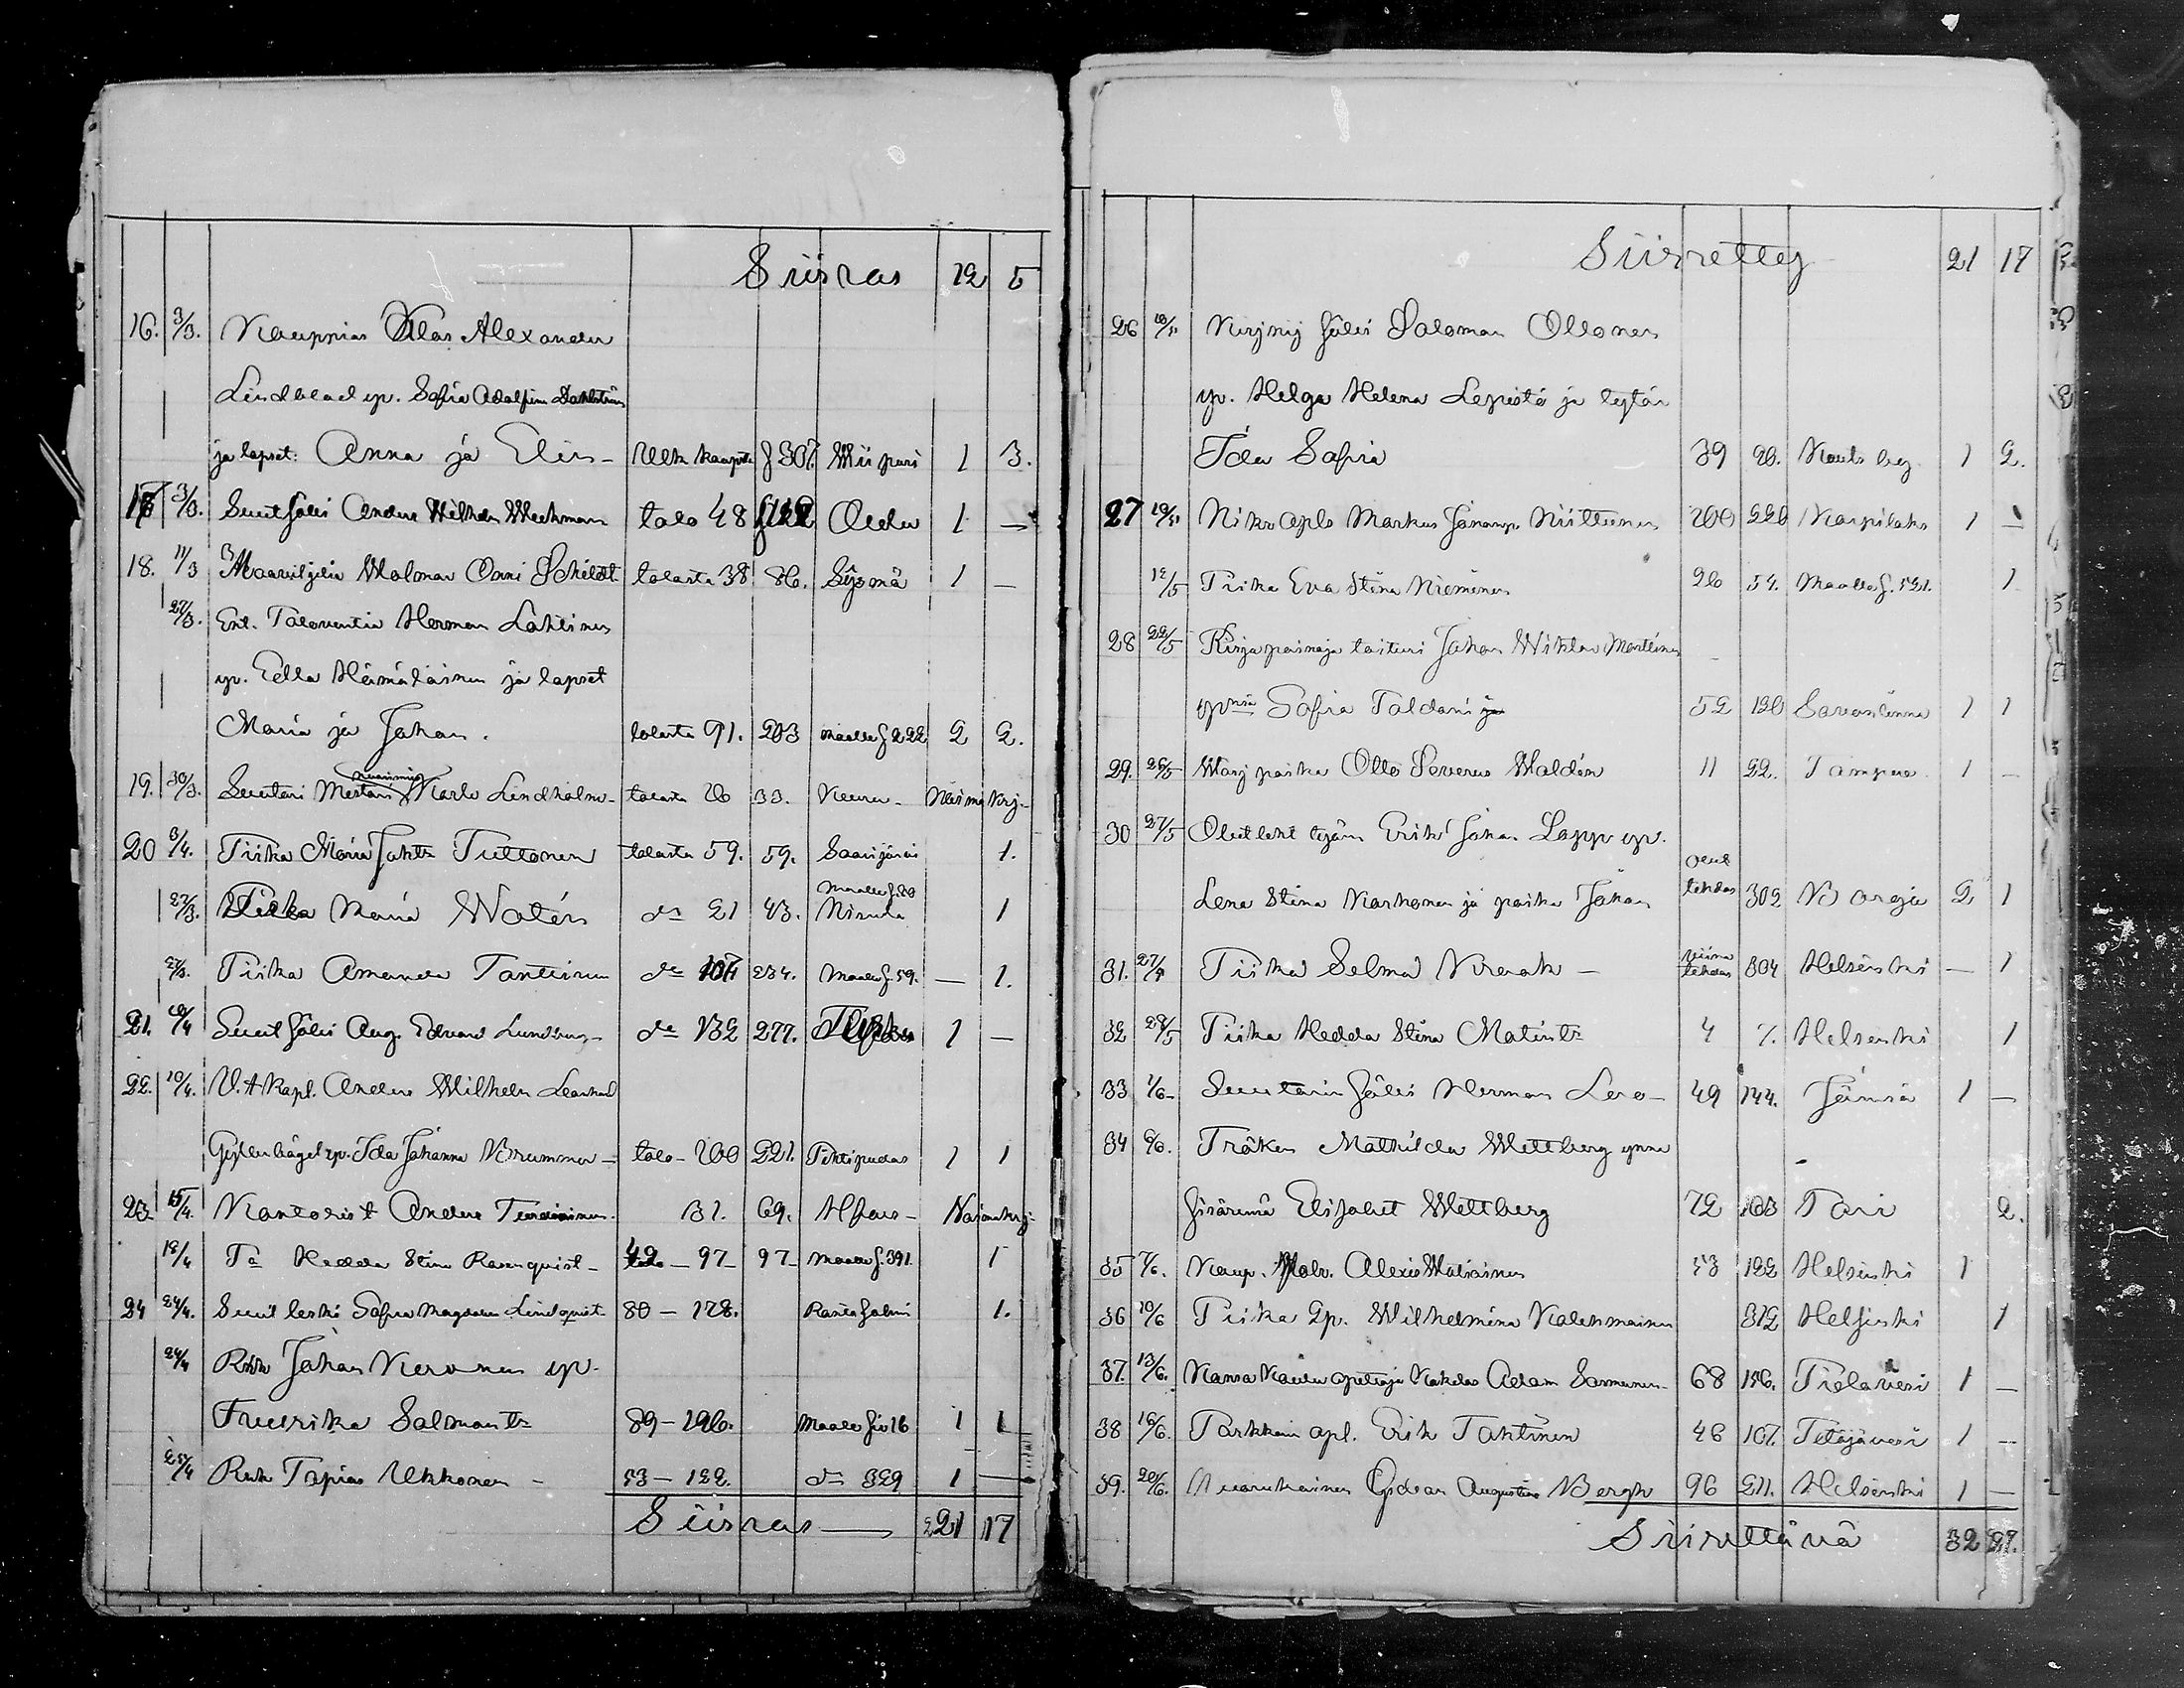 Siirros 12 5
16. 3/3. Kauppias Klas Alexander
Lindblad vp. Sofia Adolfina Dahlström
ja lapset: Anna ja Elis - Ulk kaup f 307. Wiipuri 1 3.
17 3/3. Suut sälli Anders Wilhelm Wickman talo 48 112 Oulu 1 —
18. 11/3 Maanviljeliä Wolmar Onni Schildt talosta 38. 86. Sysmä 1 —
27/3. Ent. Talovahti Herman Lahtinen
vp. Eella Hämäläinen ja lapset
Maria ja Johan. talosta 91. 203 Maalle f 222 2 2.
19. 30/3. Suutari Mestari Karl Lindholm - talosta 26 33. Keuru - Naima krj.
20 3/4. Piika Maria Joht: Tuttonen talosta 59. 59. Saarijärvi 1.
27/3. Piika Maria Watén d:o 21 43. Maalle f. 20 Nisula 1
27/3. Piika Amanda Tanttinen d:o 107 234. Maalle f. 59. — 1.
21. 10/4 Suut sälli Aug. Edvard Lundberg - d:o 132 277. Turku 1 —
22. 10/4. V. t. Kapl. Anders Wilhelm Leonhard
Gyllenbögel vp. Ida Johanna Brummer - talo - 100 221. Pihtipudas 1 1
23. 15/4. Kantorist Anders Tuominen. 31. 69. Alfors - Naimakrj:
12/4 P:a Hedda Stina Rosenquist - 42 - 97 - 97 - Maalle f. 391. 1
24 24/4. Suut leski Sofia Magdalena Lindquist 80 - 178. Rantasalmi 1.
24/4 Renk Johan Keronen vp.
Freedrika Salmont:r 89 - 196. Maalle siv 16 1 1
25/4 Renk Topias Ukkonen - 53 - 122. d:o 329 1 —
Siirros — 21 17
Siirretty 21 17
26 10/5 Nirjnij sälli Salomon Ollonen
vp. Helga Helena Lepistö ja tytär
Ida Sofia 39 90. Kouts by. 1 2.
27 10/5 Nikr apl: Markus Johanp. Niittunen 100 220 Karpilahti 1 —
12/5 Piika Eva Stina Nieminen 26 54. Maalle f. 521. 1
28 22/5 Kirjapainaja taituri Johan Wiktor Martinen
vp:nsa Sofia Taldani ja 52 120 Savonlinna 1 1
29. 26/5 Warj poika Otto Severus Waldén 11 22. Tampere. 1 —
30 27/5 Olutteht työm Erik Johan Lapp vp.
Lena Stina Karhonen ja poika Johan Olut tehdas 302 Borgå 2, 1
31. 27/5 Piika Selma Kreak — Viina tehdas 304 Helsinki — 1
32 28/5 Piika Hedda Stina Matint:r 4 7. Helsinki 1
33 1/6 - Suutarin sälli Herman Lero - 49 144. Jämsä 1 —
34 6/6. Fröken Mathilda Wettberg ynnä
sisärensä Elisabet Wettberg 72 163 Pori 2.
35 7/6. Kaup. Palv. Alexis Matiainen 53 122 Helsinki 1
36 10/6 Piika Gp. Wilhelmina Kalehmainen 312 Helsinki 1
37. 13/6. Kansa Koulu opettaja Kokelas Adam Sormunen - 68 156. Pielavesi 1 —
38 16/6. Parkkari apl. Erik Tahtinen 48 107. Petäjävesi 1 —
39. 20/6. Nuorukainen Gideon Augustinus Bergh 96 211. Helsinki 1 —
Siirrettävä 32 27.